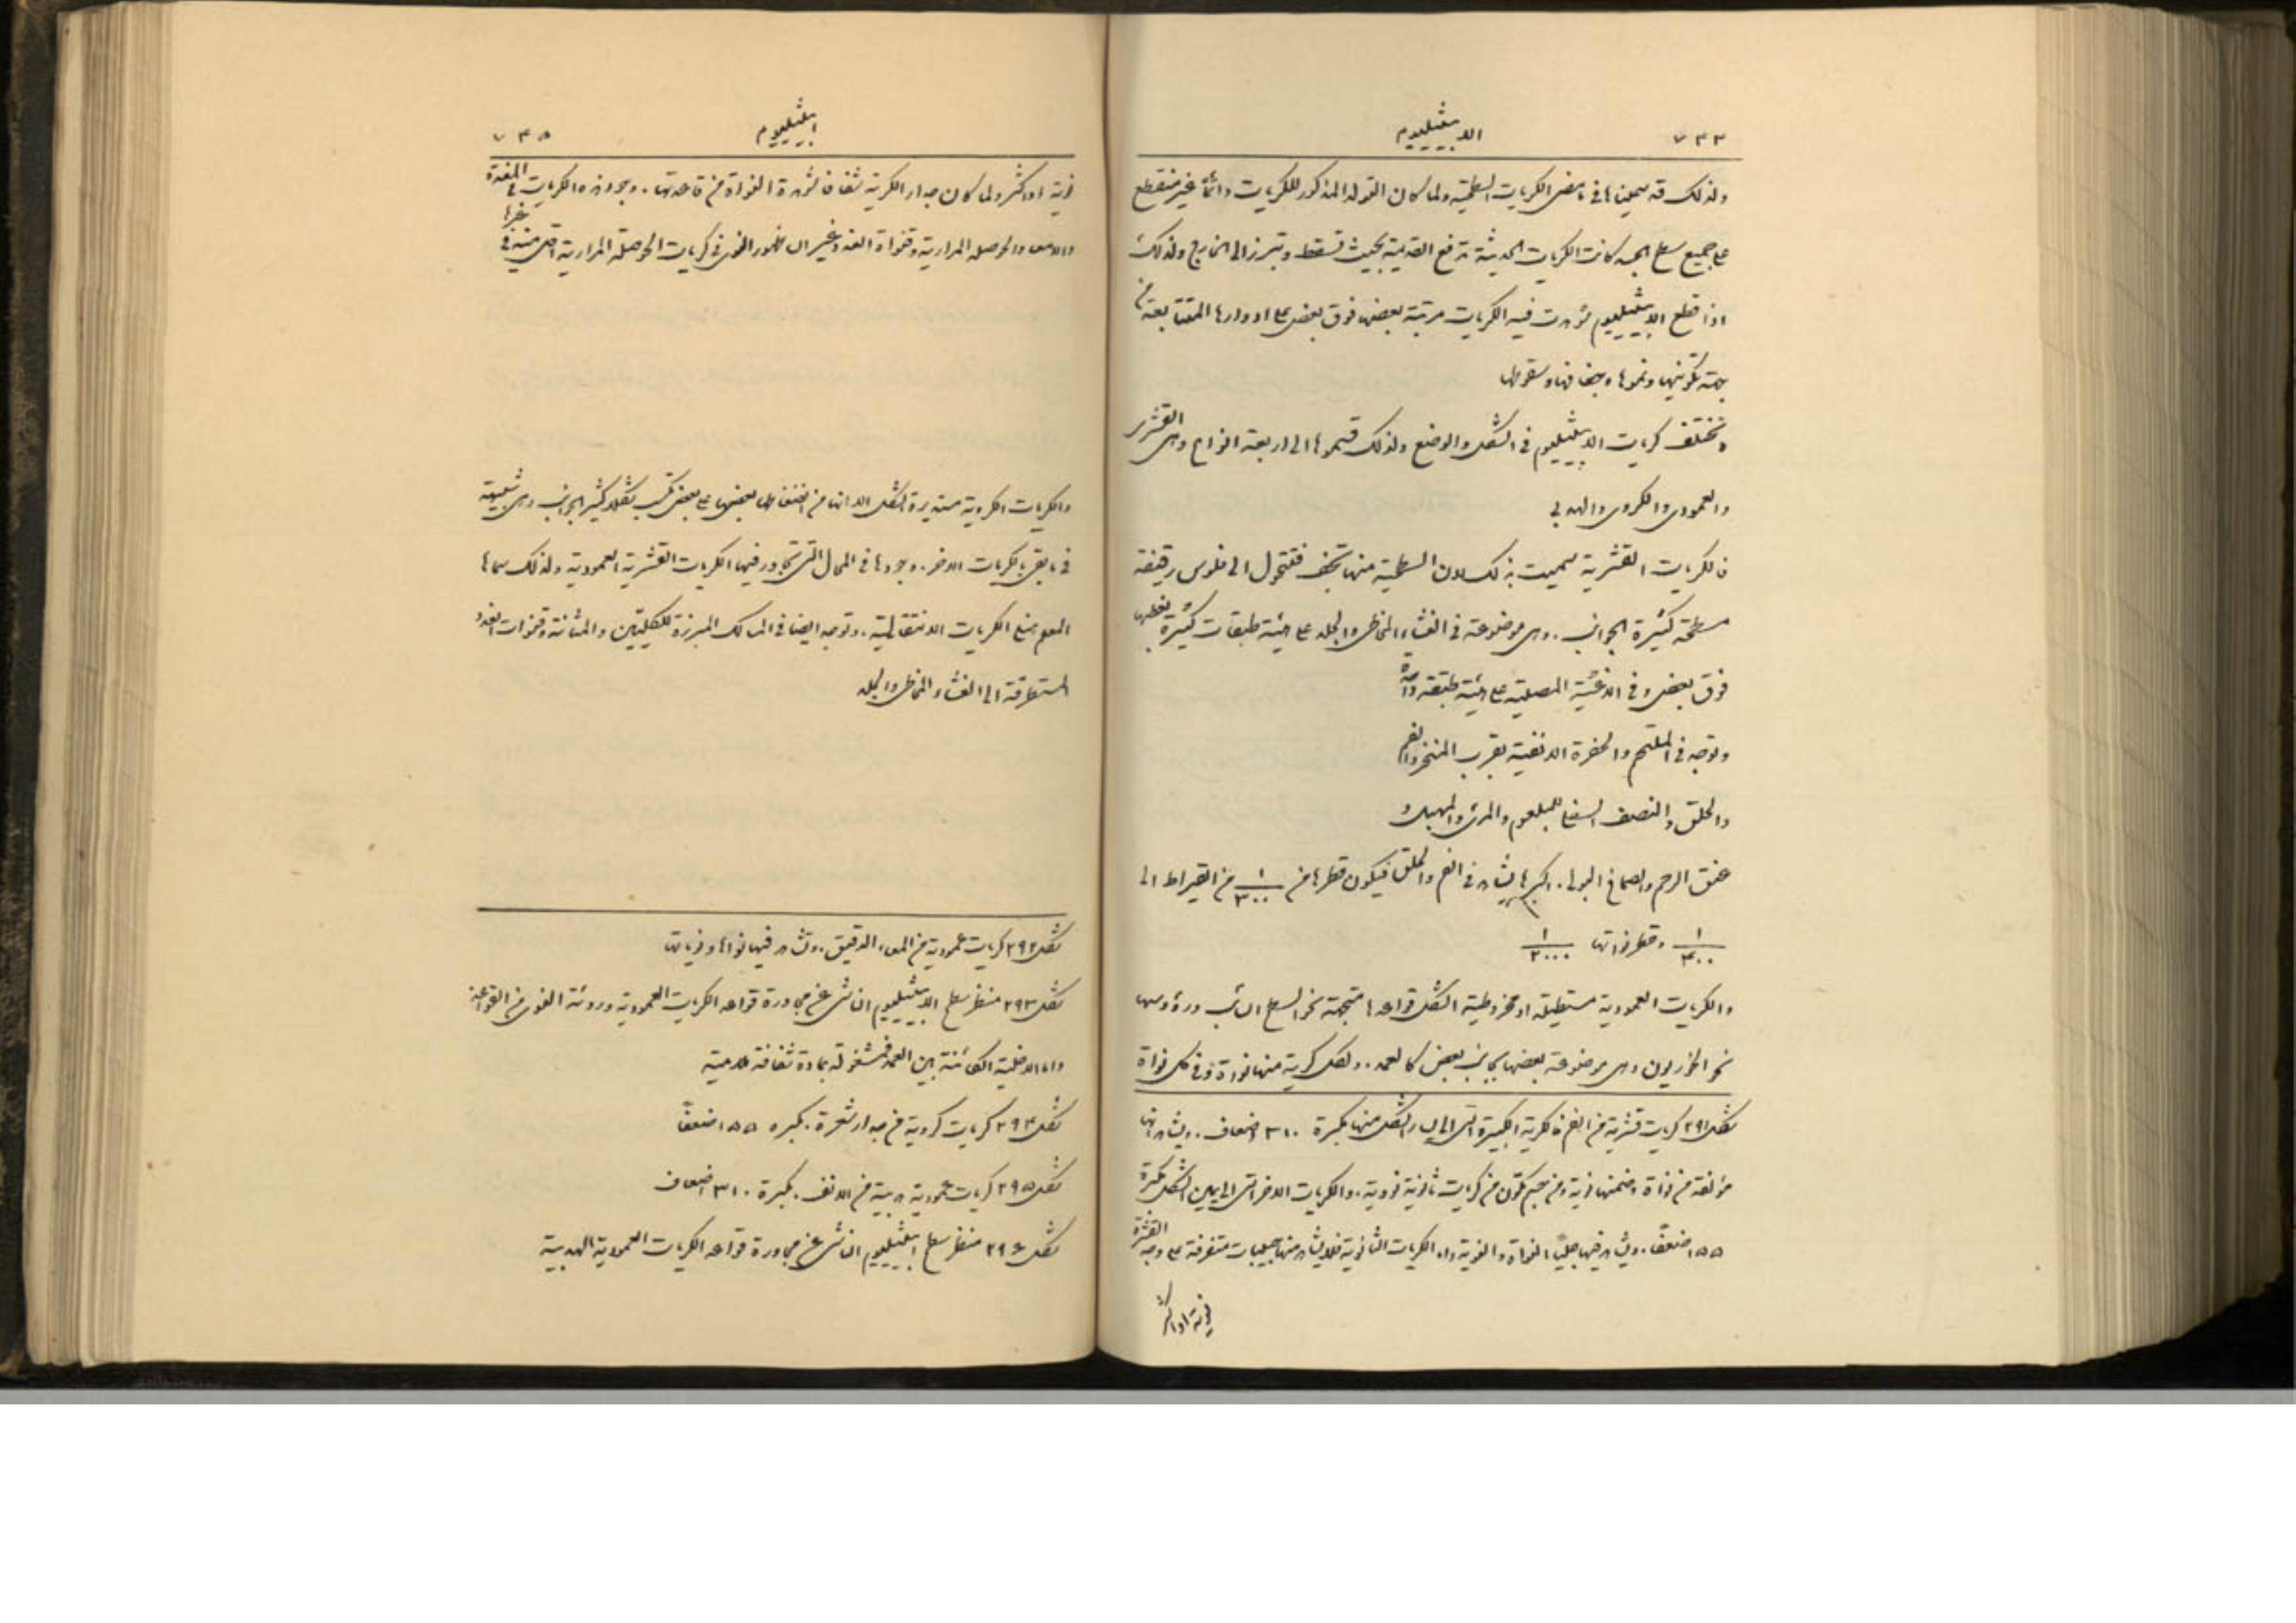 ٧٣٣ الابيثيليوم
ولذلك قد سميناها في بعض الكريات السطحية ولما كان التولد المذكور للكريات دائماً غير منقطع
على جميع سطح الجسد كانت الكريات الحديثة تدفع القديمة بحيث تسقط وتبرز الى الخارج ولذلك
اذا قطع الابيثيليوم شوهدت فيه الكريات مرتبة بعضها فوق بعض على ادوارها المتتابعة من
جهة تكوينها ونموها وجفافها وسقوطها
وتختلف كريات الابيثيليوم في الشكل والوضع ولذلك قسموها الى اربعة انواع وهي القشري
والعمودي والكروي والهدبي
فالكريات القشرية سميت بذلك لان السطحية منها تجف فتتحول الى فلوس رقيقة
مسطحة كثيرة الجوانب. وهي موضوعة في الغشاء المخاطي والجلد على هيئة طبقات كثيرة بعضها
فوق بعض وفي الاغشية المصلية على هيئة طبقة واحدة
وتوجد في الملتحم والحفرة الانفية بقرب المنخر والفم
والحلق والنصف السفلي للبلعوم والمري والمهبل و
عنق الرحم والصماخ البولي. اكبرها يشاهد في الفم والحلق فيكون قطرها من ١/٣٠٠ من القيراط الى
١/٤٠٠ وقطر نواتها ١/٣٠٠٠
والكريات العمودية مستطيلة او مخروطية الشكل قواعدها متجهة نحو السطح السائب ورؤوسها
نحو الكوريون وهي موضوعة بعضها بجانب بعض كالعمد. ولكل كرية منها نواة وفي كل نواة
شكل ٢٩١ كريات قشرية من الفم فالكرية الكبيرة التي الى يسار الشكل منها مكبرة ٣١٠ اضعاف. ويشاهد انها
مؤلفة من نواة وضمنها نوية ومن جسم تكون من كريات ثانوية نووية. والكريات الاخر التي الى يمين الشكل مكبرة
١٥٥ ضعفاً. ويشاهد فيها جلياً النواة والنوية واما الكريات الثانوية فلا يشاهد منها حبيبات متفرقة على وجه القشرة
نوية او اكثر
ابيثيليوم ٧٣٥
نوية او اكثر ولما كان جدار الكرية شفافاً شوهدت النواة من قاعدتها. وجود هذه الكريات في المعدة
والامعاء والحوصلة المرارية وقنواة الغدد غير ان ظهور النوى في كريات الحوصلة المرارية اقل منه في غيرها
والكريات الكروية مستديرة الشكل الا انها من انضغاطها بعضها على بعض تكسب شكلاً كثير الجوانب وهي شبيهة
في ما بقي بالكريات الاخر. وجودها في المحال التي تتجاور فيها الكريات القشرية والعمودية ولذلك سماها
المعلم هنلي الكريات الانتقالية. وتوجد ايضاً في المسالك المبرزة للكليتين والمثانة وقنوات الغدد
المستطرقة الى الغشاء المخاطي والجلد
شكل ٢٩٢ كريات عمودية من المعاء الدقيق. وتشاهد فيها نواها ونوياتها
شكل ٢٩٣ منظر سطح الابيثيليوم الناشي عن مجاورة قواعد الكريات العمودية ورؤية النوى من القواعد
واما الاخلية الكائنة بين العمد فمشغولة بمادة شفافة هلامية
شكل ٢٩٤ كريات كروية من جدار شعرة. مكبرة ١٥٥ ضعفاً
شكل ٢٩٥ كريات عمودية هدبية من الانف. مكبرة ٣١٠ اضعاف
شكل ٢٩٦ منظر سطح ابيثيليوم الناشي عن مجاورة قواعد الكريات العمودية الهدبية